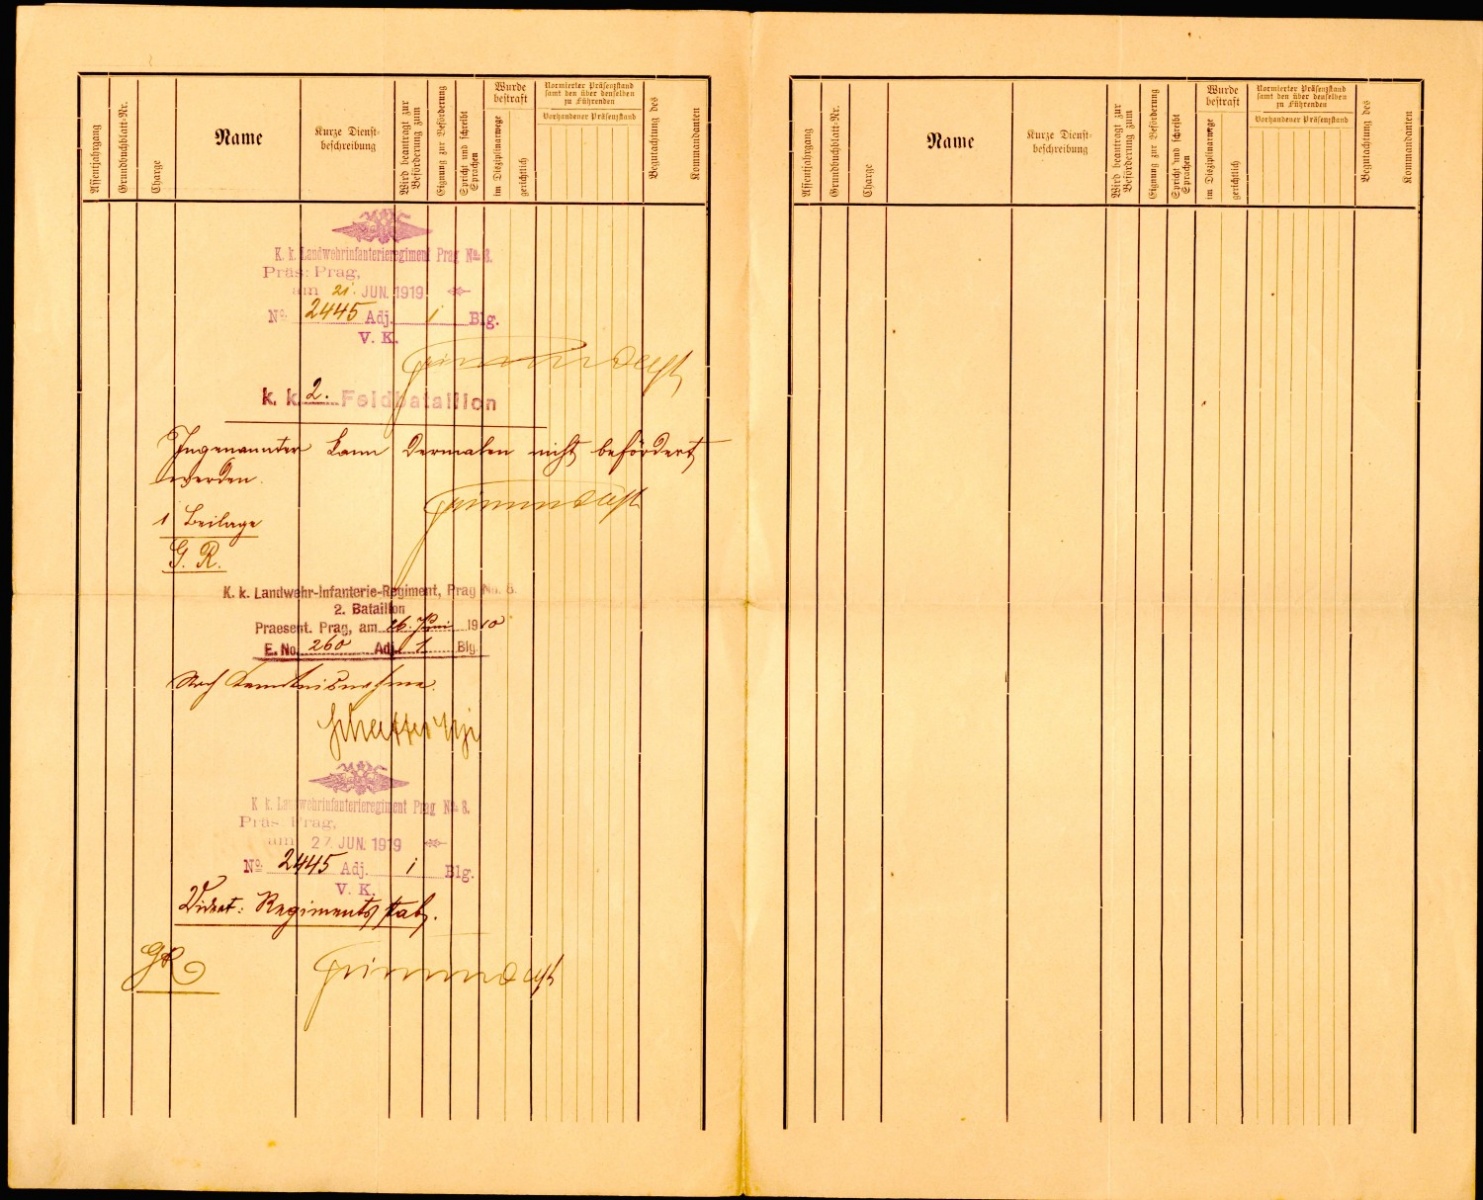 Assentjahrgang
Grundbuchblatt-Nr.
Charge
Name
Kurze Dienst-
beschreibung
Wird beantragt zur
Beförderung zum
Eignung zur Beförderung
Spricht und schreibt
Sprachen
Wurde
bestraft
im Disziplinarwege
gerichtlich
Normierter Präsenzstand
samt den über denselben
zu Führenden
Vorhandener Präsenzstand
Begutachtung des
Kommandanten
K. k. Landwehrinfanterieregiment Prag No. 8.
Präs: Prag,
am 21. JUN. 1919
No. 2445 Adj. 1 Blg.
V. K.
k. k. 2. Feldbataillon
Zugenannter kann dermalen nicht befördert
werden.
1 Beilage
G. R.
K. k. Landwehr-Infanterie-Regiment, Prag No. 8.
2. Bataillon
Praesent. Prag, am 26. Juni 1910
E. No. 260 Adj. 1 Blg.
Nach Kenntnisnahme.
K. k. Landwehrinfanterieregiment Prag No. 8.
Präs: Prag,
am 27. JUN. 1919
No. 2445 Adj. 1 Blg.
V. K.
Vidrat: Regimentsstab.
GR
Assentjahrgang
Grundbuchblatt-Nr.
Charge
Name
Kurze Dienst-
beschreibung
Wird beantragt zur
Beförderung zum
Eignung zur Beförderung
Spricht und schreibt
Sprachen
Wurde
bestraft
im Disziplinarwege
gerichtlich
Normierter Präsenzstand
samt den über denselben
zu Führenden
Vorhandener Präsenzstand
Begutachtung des
Kommandanten